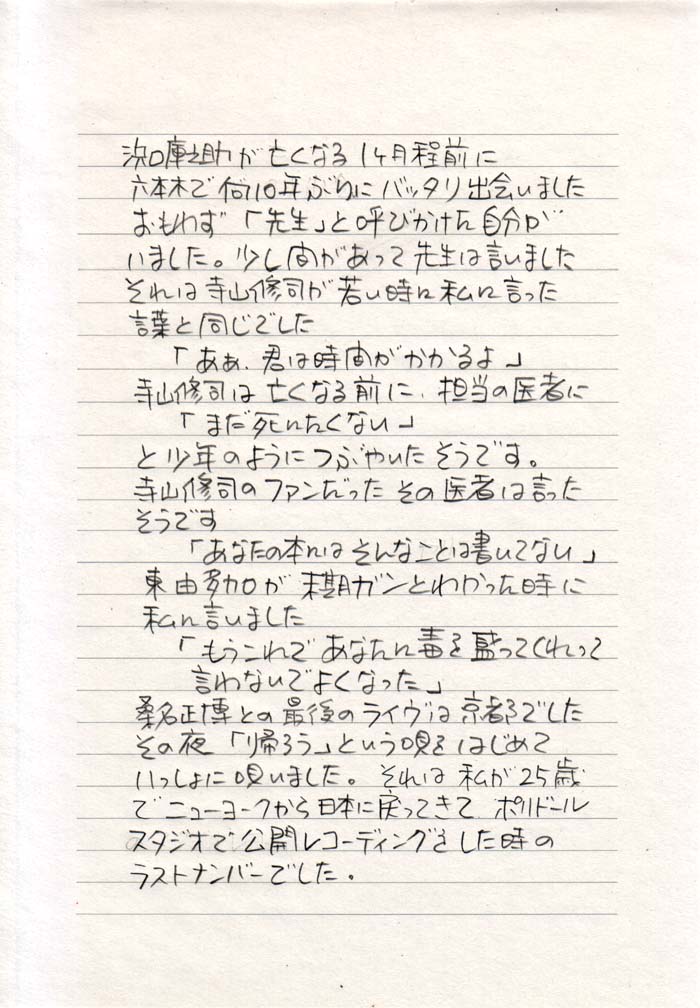 浜口庫之助が亡くなる1ヶ月程前に
六本木で何10年ぶりにバッタリ出会いました
おもわず「先生」と呼びかけた自分が
いました。少し間があって先生は言いました
それは寺山修司が若い時に私に言った
言葉と同じでした
「あぁ、君は時間がかかるよ」
寺山修司は亡くなる前に、担当の医者に
「まだ死にたくない」
と少年のようにつぶやいたそうです。
寺山修司のファンだったその医者は言った
そうです
「あなたの本にはそんなことは書いてない」
東由多加が末期ガンとわかった時に
私に言いました
「もうこれであなたに毒を盛ってくれって
言わないでよくなった」
桑名正博との最後のライヴは京都でした
その夜「帰ろう」という唄をはじめて
いっしょに唄いました。それは私が25歳
でニューヨークから日本に戻ってきて ポリドール
スタジオで公開レコーディングをした時の
ラストナンバーでした。